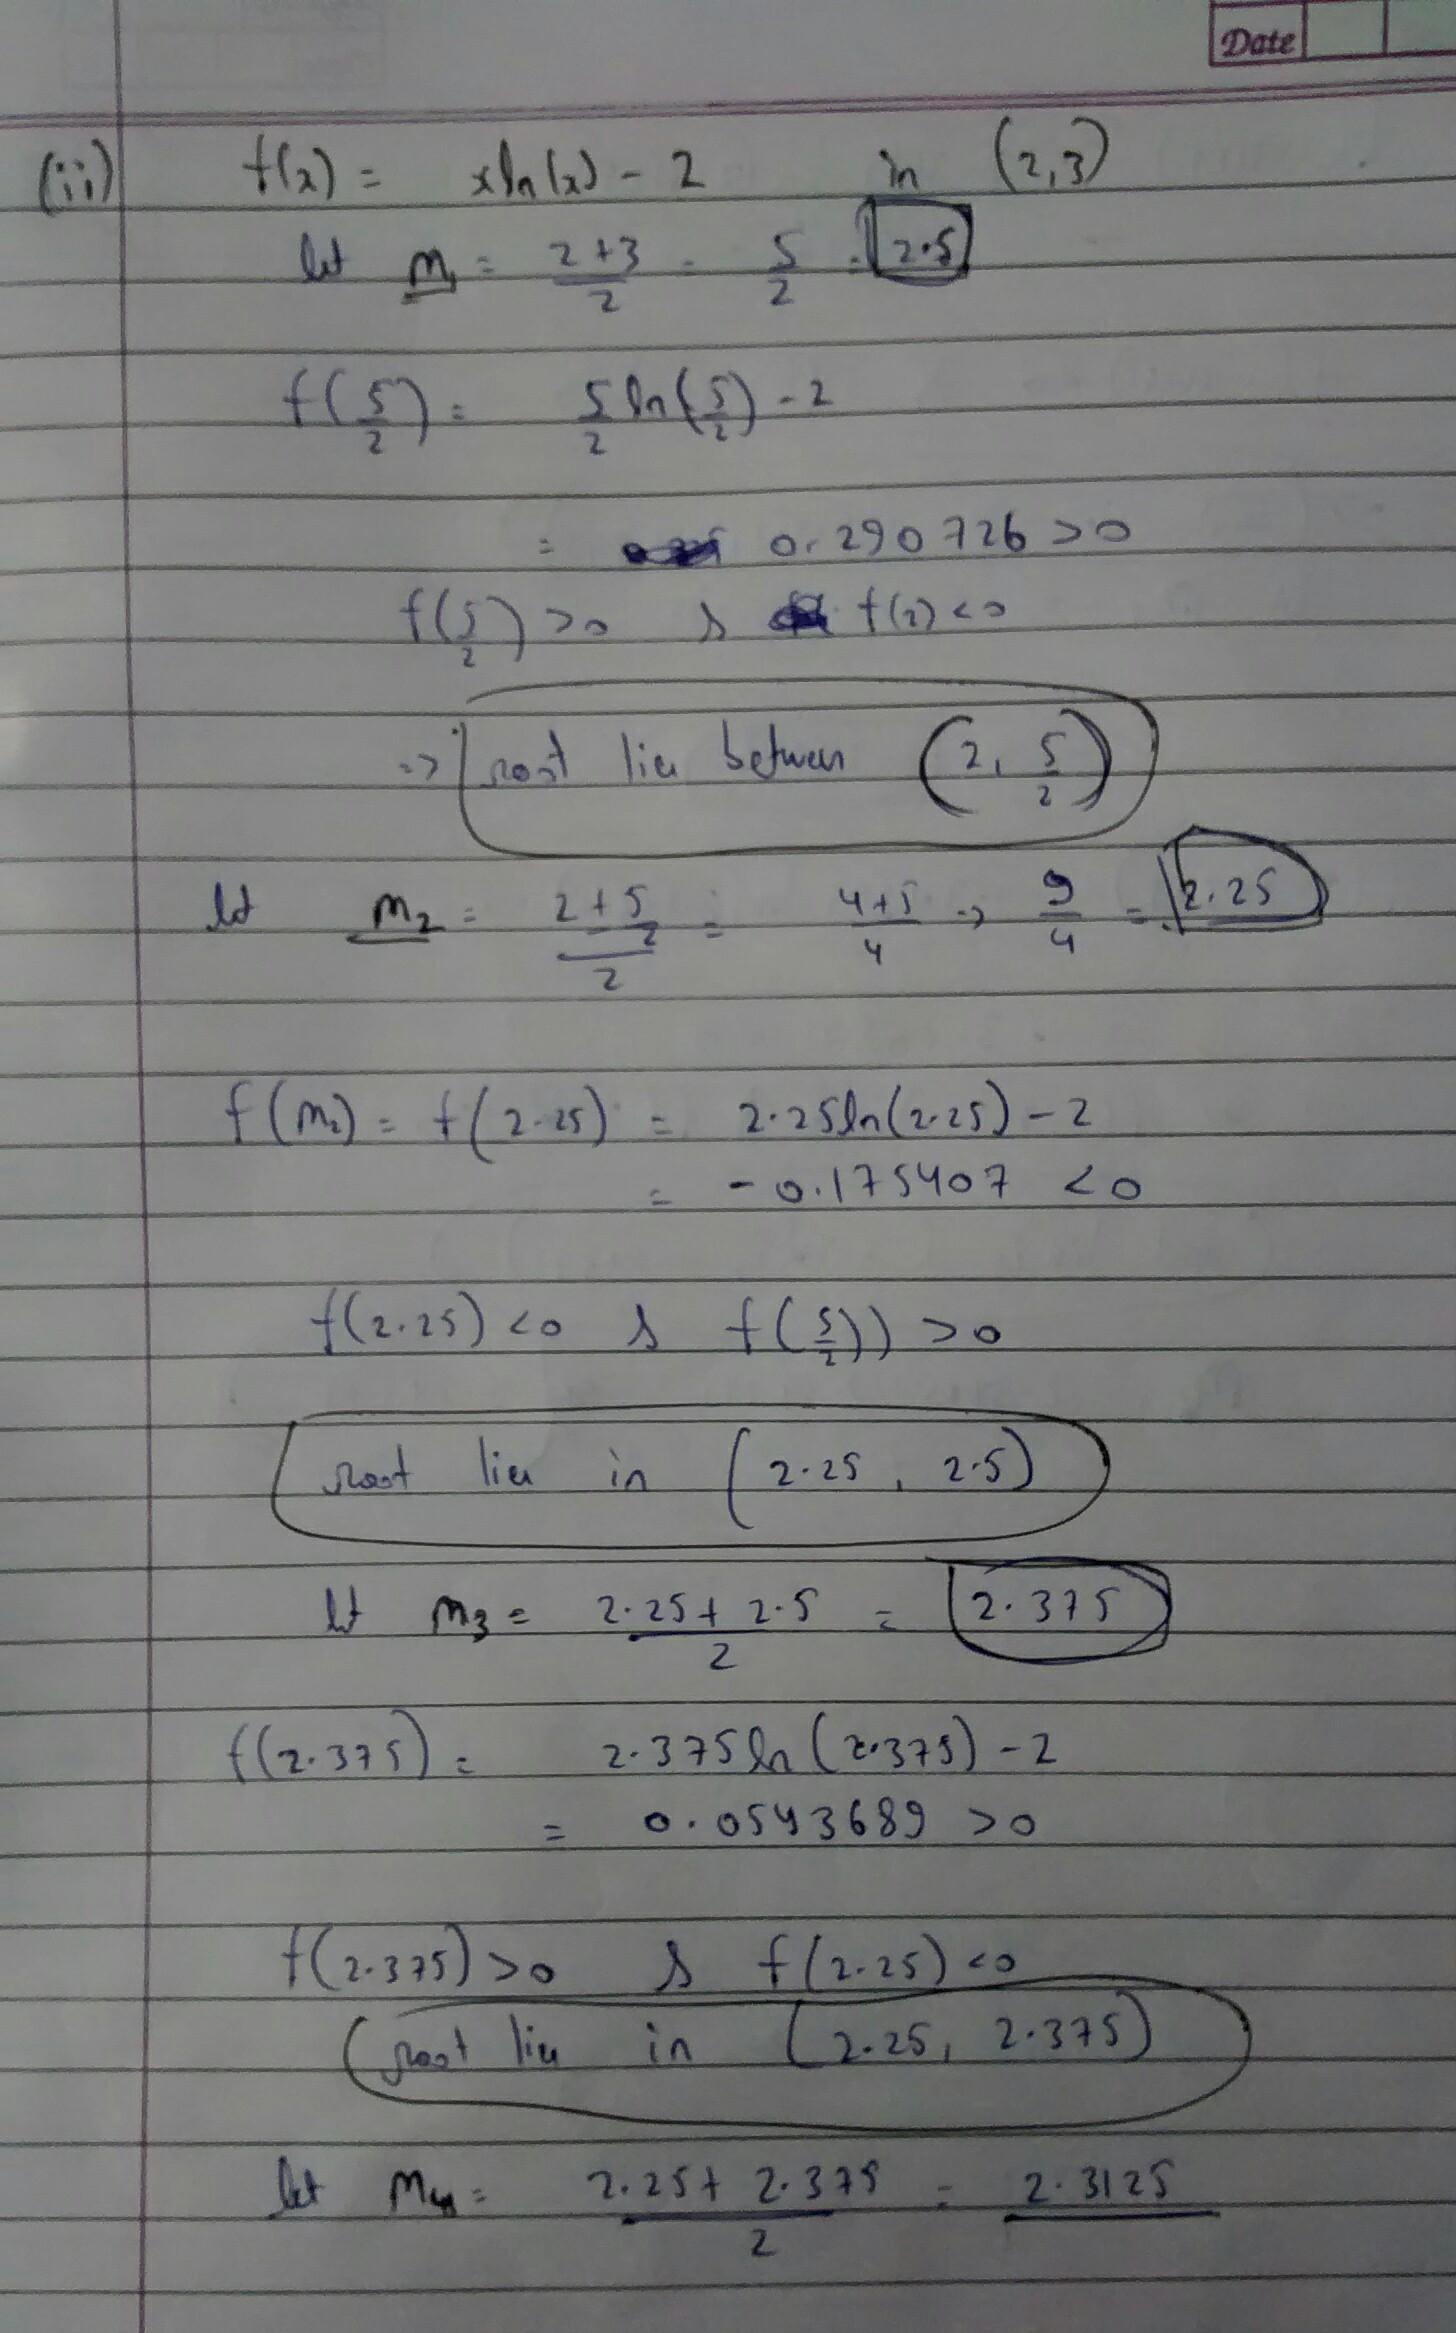 Date
(ii) f(x) = xln(x) - 2 in (2,3)
let m₁ = (2+3)/2 = 5/2 = 2.5
f(5/2) = 5/2 ln(5/2) - 2
= 0.290726 >0
f(5/2) >0 & f(2) <0
=> root lies between (2, 5/2)
let m₂ = (2+5/2)/2 = (4+5)/4 => 9/4 = 2.25
f(m₂) = f(2.25) = 2.25ln(2.25) - 2
= -0.175407 <0
f(2.25) <0 & f(5/2)) >0
root lies in (2.25, 2.5)
let m₃ = (2.25+2.5)/2 = 2.375
f(2.375) = 2.375ln(2.375) - 2
= 0.0543689 >0
f(2.375) >0 & f(2.25) <0
root lies in (2.25, 2.375)
let m₄ = (2.25+2.375)/2 = 2.3125